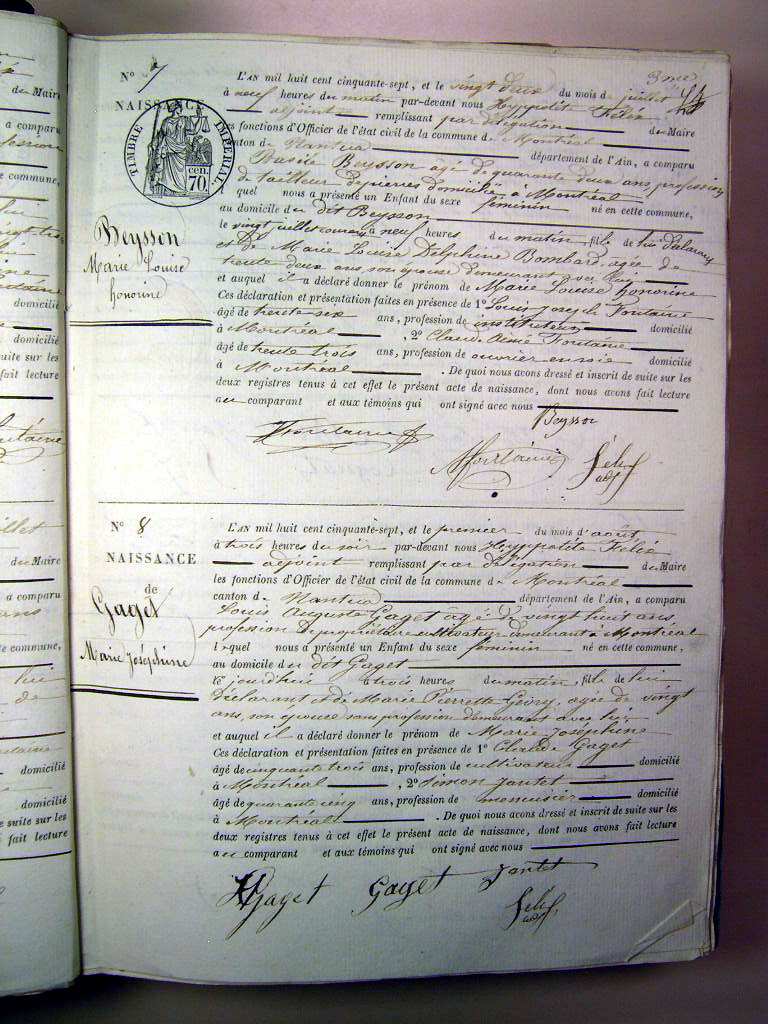 3me
N° 7
NAISSANCE
TIMBRE IMPERIAL
70. cen.
Beysson
Marie Louise
honorine
L'AN mil huit cent cinquante-sept, et le vingt deux du mois de juillet
à neuf heures du matin par-devant nous Hyppolite Félix
adjoint remplissant par délégation du Maire
les fonctions d'Officier de l'état civil de la commune de Montréal
canton de Nantua département de l'Ain, a comparu
Basile Beysson agé de quarante deux ans profession
de tailleur de pierres domicilié à Montréal
quel nous a présenté un Enfant du sexe féminin né en cette commune,
au domicile du dit Beysson
le vingt juillet courant à neuf heures du matin, fille de lui déclarant
et de Marie Louise Delphine Bombard agée de
trente deux ans son épouse demeurant avec lui
et auquel il a déclaré donner le prénom de Marie Louise honorine
Ces déclaration et présentation faites en présence de 1° Louis Joseph Fontaine
âgé de trente six ans, profession de instituteur domicilié
à Montréal, 2° Claude Aimé Fontaine
âgé de trente trois ans, profession de ouvrier en soie domicilié
à Montréal. De quoi nous avons dressé et inscrit de suite sur les
deux registres tenus à cet effet le présent acte de naissance, dont nous avons fait lecture
au comparant et aux témoins qui ont signé avec nous
Beysson
Fontaine
Fontaine Félix
adj
N° 8
NAISSANCE
de
Gaget
Marie Joséphine
L'AN mil huit cent cinquante-sept, et le premier du mois d'août,
à trois heures du soir par-devant nous Hyppolite Félix
adjoint remplissant par délégation du Maire
les fonctions d'Officier de l'état civil de la commune de Montréal
canton de Nantua département de l'Ain, a comparu
Louis Auguste Gaget âgé de vingt huit ans
profession de propriétaire cultivateur demeurant à Montréal
lequel nous a présenté un Enfant du sexe féminin né en cette commune,
au domicile du dit Gaget
le jourdhui à trois heures du matin, fille de lui
déclarant et de Marie Pierrette agée de vingt
ans, son epouse sans profession demeurant avec lui
et auquel il a déclaré donner le prénom de Marie Joséphine
Ces déclaration et présentation faites en présence de 1° Claude Gaget
âgé de cinquante trois ans, profession de cultivateur domicilié
à Montréal, 2° Simon Jantet
âgé de quarante cinq ans, profession de menuisier domicilié
à Montréal. De quoi nous avons dressé et inscrit de suite sur les
deux registres tenus à cet effet le présent acte de naissance, dont nous avons fait lecture
au comparant et aux témoins qui ont signé avec nous
Gaget Gaget Jantet
Félix
adj
du Maire
a comparu
commune,
domicilié
domicilié
suite sur les
fait lecture
du Maire
a comparu
commune,
domicilié
domicilié
suite sur les
fait lecture